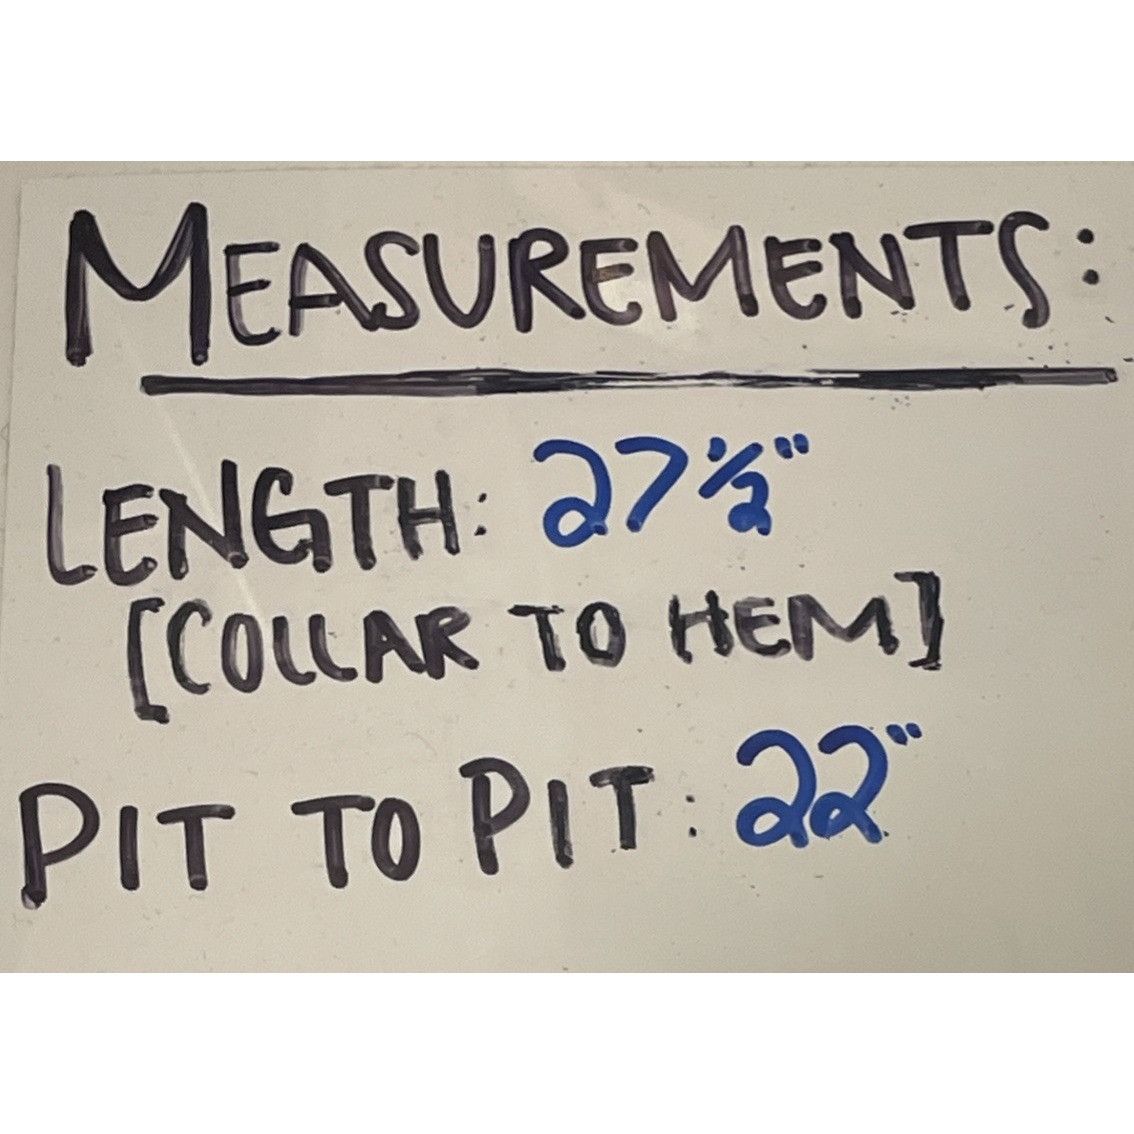 MEASUREMENTS:
LENGTH: 27 1/2"
[COLLAR TO HEM]
PIT TO PIT: 22"